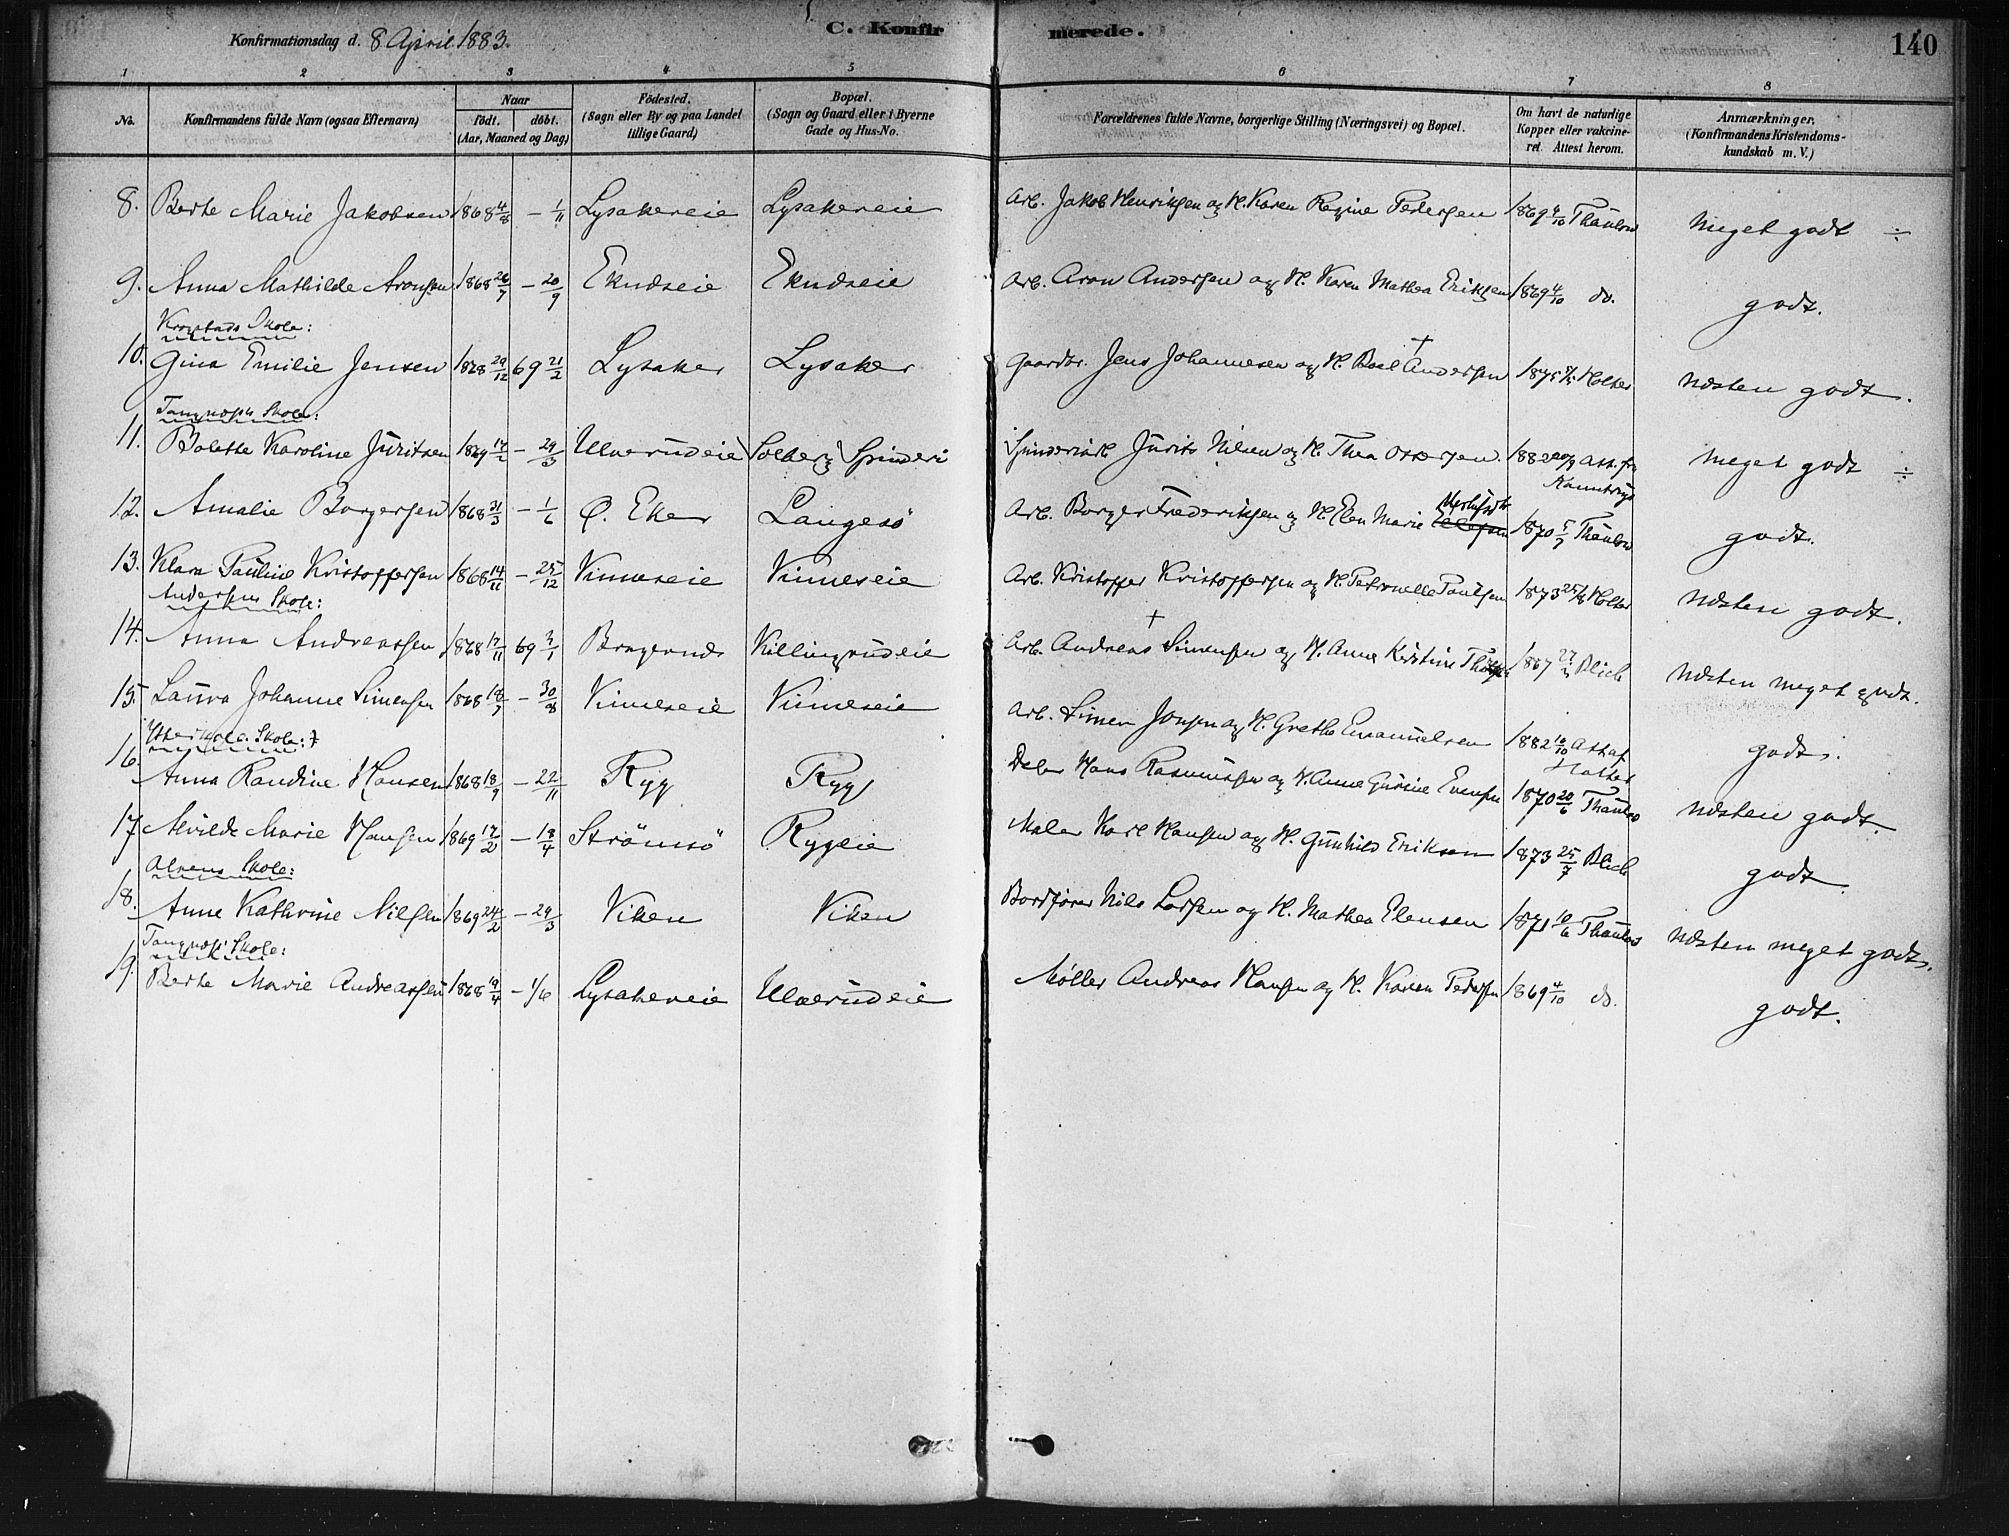 Konfirmationsdag d. 8 April 1883.
C. Konfirmerede.
140
1 2 3 4 5 6 7 8
No.
Konfirmandens fulde Navn (ogsaa Efternavn)
Naar
födt. döbt.
(Aar, Maaned og Dag)
Födested.
(Sogn eller By og paa Landet
tillige Gaard)
Bopæl.
(Sogn og Gaard eller i Byerne
Gade og Hus-No.
Forældrenes fulde Navne, borgerlige Stilling (Næringsvei) og Bopæl.
Om havt de naturlige
Kopper eller vakcine-
ret. Attest herom.
Anmærkninger.
(Konfirmandens Kristendoms-
kundskab m. V.)
8. Berte Marie Jakobsen 1868 4/8 - 1/11 Lysakereie Lysakereie Arb. Jakob Henriksen og H. Karen Regine Pedersen 1869 4/10 Thaulow Meget godt ÷
9. Anna Mathilde Aronsen 1868 26/7 - 20/9 Eknæseie Eknæseie Arb. Aron Andersen og H. Karen Mathea Eriksen 1869 4/10 do. godt.
Krogstads Skole:
10. Gina Emilie Jensen 1868 29/12 69 21/2 Lysaker Lysaker Gaardbr. Jens Johannesen og H. Boel † Andersen 1875 Holter Næsten godt.
Skole:
11. Bolette Karoline Juritsen 1869 - 29/3 Ulverudeie Solberg Spinderi Spinderiarb. Jurits Nilsen og H. Thea 1882 Att. fra Meget godt ÷
12. Amalie Borgersen 1868 31/3 - 1/6 Ø. Eker Langesö Arb. Borger Frederiksen og H. Elen Marie 1870 5/7 Thaulow godt.
13. Klara Pauline Kristoffersen 1868 14/11 - 25/12 Vinneseie Vinneseie Arb. Kristoffer Kristoffersen og H. Petronelle Paulsen 1873 Holter Næsten godt.
Andersens Skole:
14. Anna Andreassen 1868 17/11 69 3/1 Bragernæs Killingrudeie Arb. Andreas † Simensen og H. Anne Kristine 1867 Blich Næsten meget godt.
15. Laura Johanne Simensen 1868 18/7 - 30/8 Vinneseie Vinneseie Arb. Simen Jonsen og H. Grethe Emanuelsen 1882 10/10 Att. af Holter godt.
Skole:
16. Anna Randine Hansen 1868 18/9 - 22/11 Ryg Ryg Hans Rasmussen og H. Anne Gurine Evensen 1870 20/6 Thaulow Næsten godt.
17. Alvilde Marie Hansen 1869 17/2 - 18/4 Strömsö Rygeie Maler Karl Hansen og H. Gunhild Eriksen 1873 25/7 Blich godt
Skole:
18. Anne Kathrine Nilsen 1869 24/2 - 29/3 Viken Viken Bordfører Nils Larsen og H. Mathea Elensen 1871 10/6 Thaulow Næsten meget godt.
Skole:
19. Berte Marie Andreassen 1868 19/4 - 1/6 Lysakereie Ulverudeie Møller Andreas Hansen og H. Karen Pedersen 1869 4/10 do. godt.